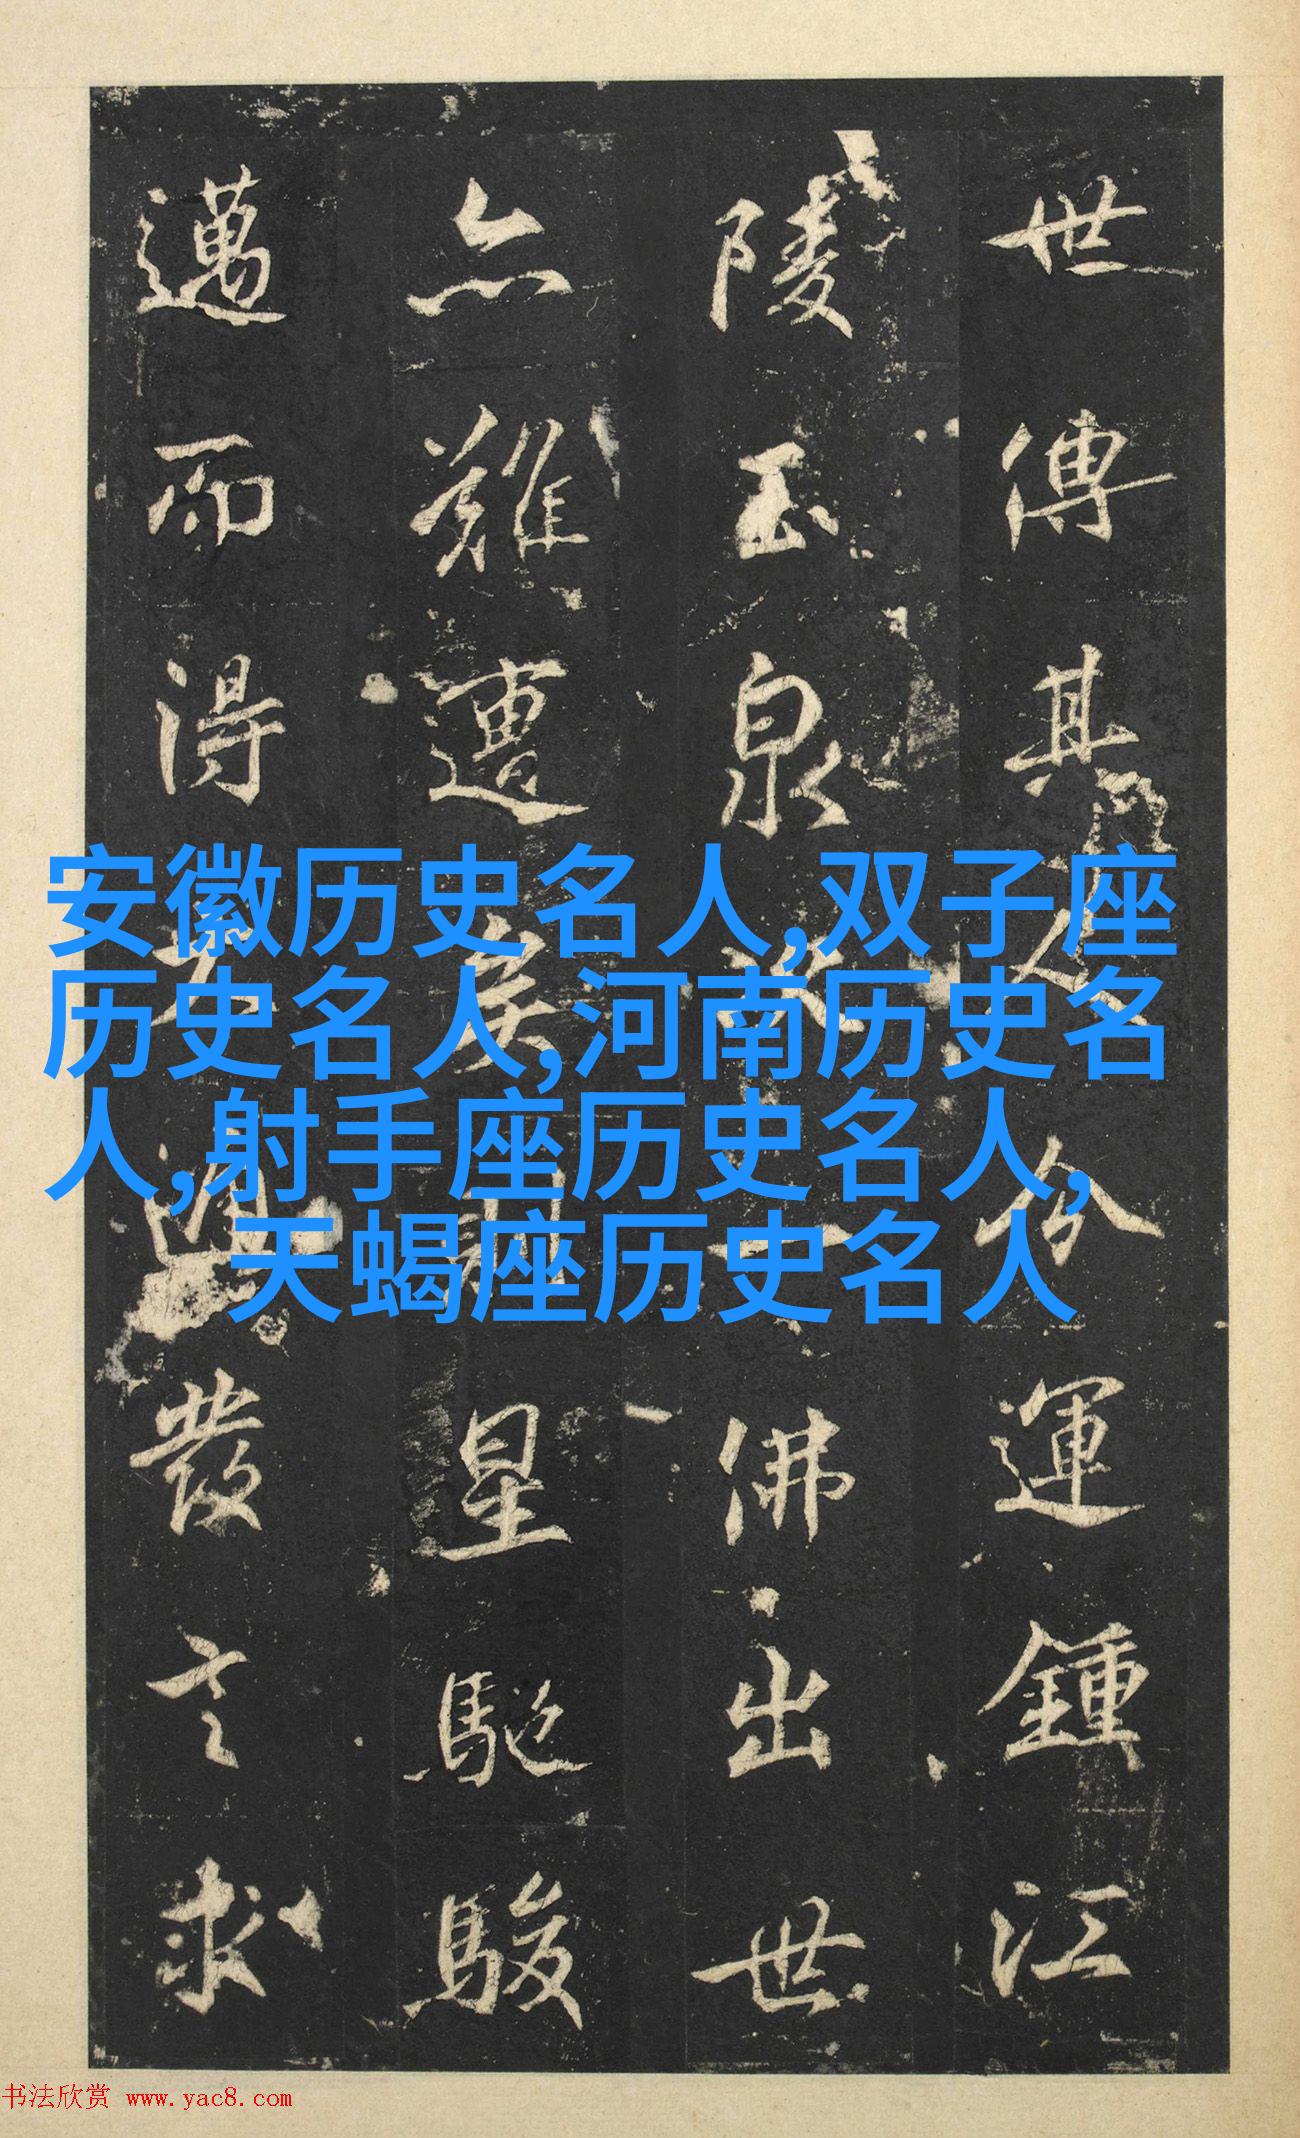 世傳其人運鍾江
陵玉泉一佛出世
亦難遭矣星馳駿
邁而得發言求
安徽历史名人,双子座
历史名人,河南历史名
人,射手座历史名人,
天蝎座历史名人
书法欣赏 www.yac8.com